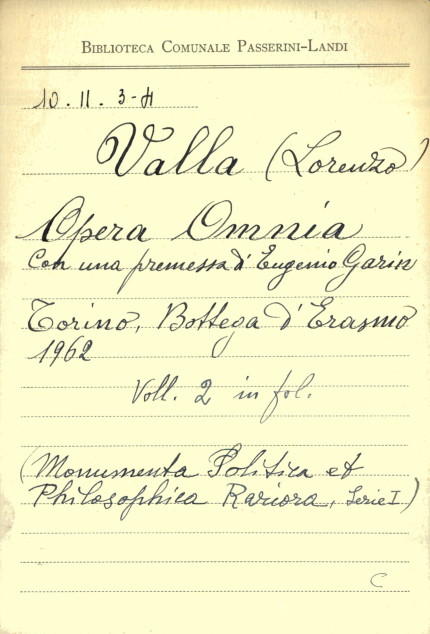 BIBLIOTECA COMUNALE PASSERINI-LANDI
10. II. 3-4
Valla (Lorenzo)
Opera Omnia
Con una premessa d'Eugenio Garin
Torino, Bottega d'Erasmo
1962
Voll. 2 in fol.
(Monumenta Politica et
Philosophica Rariora, Serie I)
C